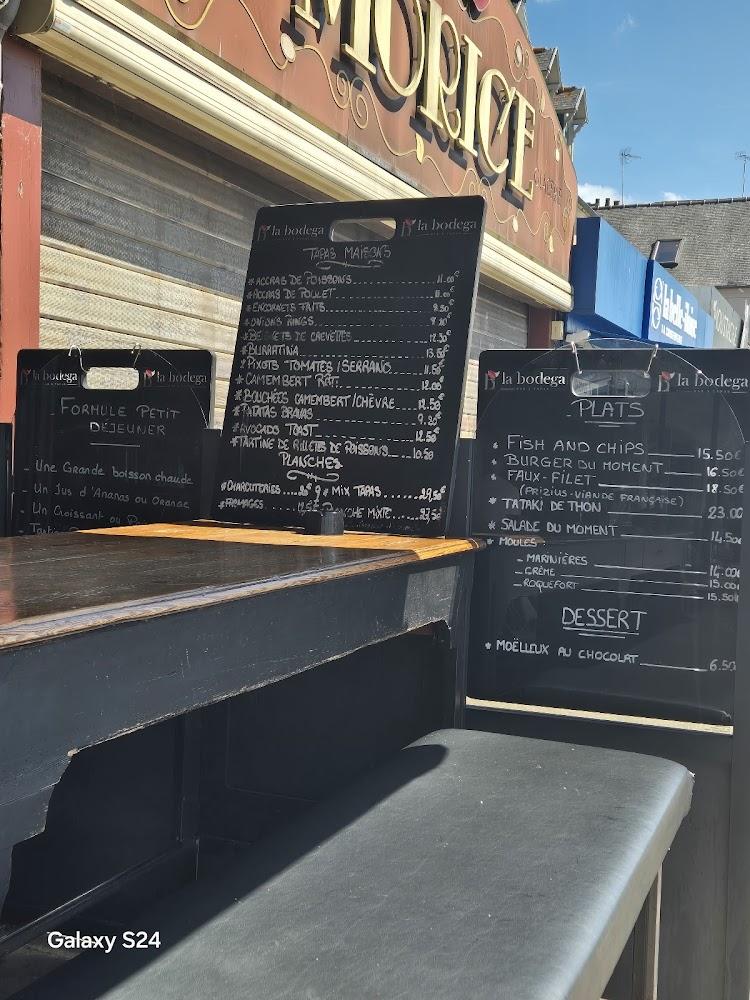 MORICE
la bodega la bodega
TAPAS MAISONS
* ACCRAS DE POISSONS 11.00€
* ACCRAS DE POULET 11.00€
* ENCORNETS FRITS 9.50€
* ONIONS RINGS 9.20€
DE CREVETTES 12.50€
* BURRATINA 13.50€
* PIXOTS TOMATES / SERRANO 11.50€
* CAMEMBERT RÔTI 12.00€
* BOUCHÉES CAMEMBERT/CHÈVRE 12.50€
* PATATAS BRAVAS 9.20€
* AVOCADO TOAST 12.50€
* TARTINE DE RILLETTES DE POISSONS 10.50
PLANCHES
* CHARCUTERIES * MIX TAPAS 29,50€
* FROMAGES PLANCHE MIXTE
la bodega la bodega
FORMULE PETIT
DEJEUNER
- Une Grande boisson chaude
- Un Jus d'Ananas ou Orange
- Un Croissant ou
la bodega la bodega
PLATS
* FISH AND CHIPS 15.50€
* BURGER DU MOMENT 16.50€
* FAUX-FILET 18.50€
(PRIZIUS-VIANDE FRANÇAISE)
* TATAKI DE THON 23.00
* SALADE DU MOMENT 14.50€
* MOULES
- MARINIÈRES 14.00€
- CRÈME 15.00€
- ROQUEFORT 15.50€
DESSERT
* MOËLLEUX AU CHOCOLAT 6.50
Galaxy S24